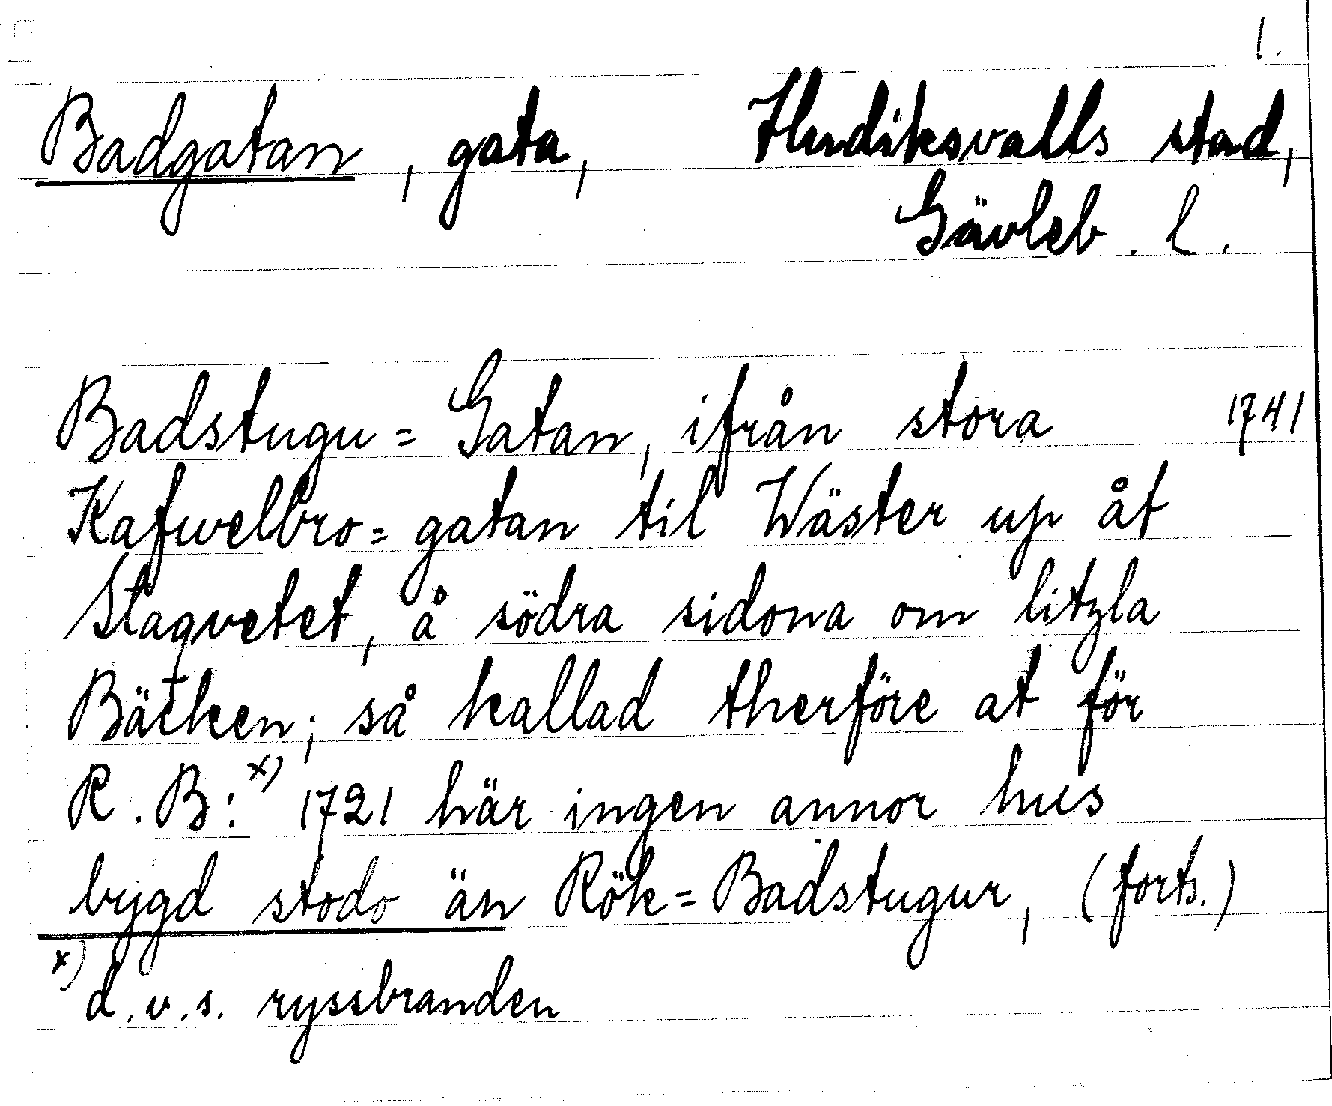 1.
Badgatan, gata, Hudiksvalls stad,
Gävleb. l.
Badstugu=Gatan, ifrån stora 1741
Kafwelbro=gatan til Wäster up åt
Slaqvetet, å södra sidona om litzla
Bäcken; så kallad therföre at för
R. B:x) 1721 här ingen annor hus
bygd stodo än Rök=Badstugur, (forts.)
x) d.v.s. ryssbranden